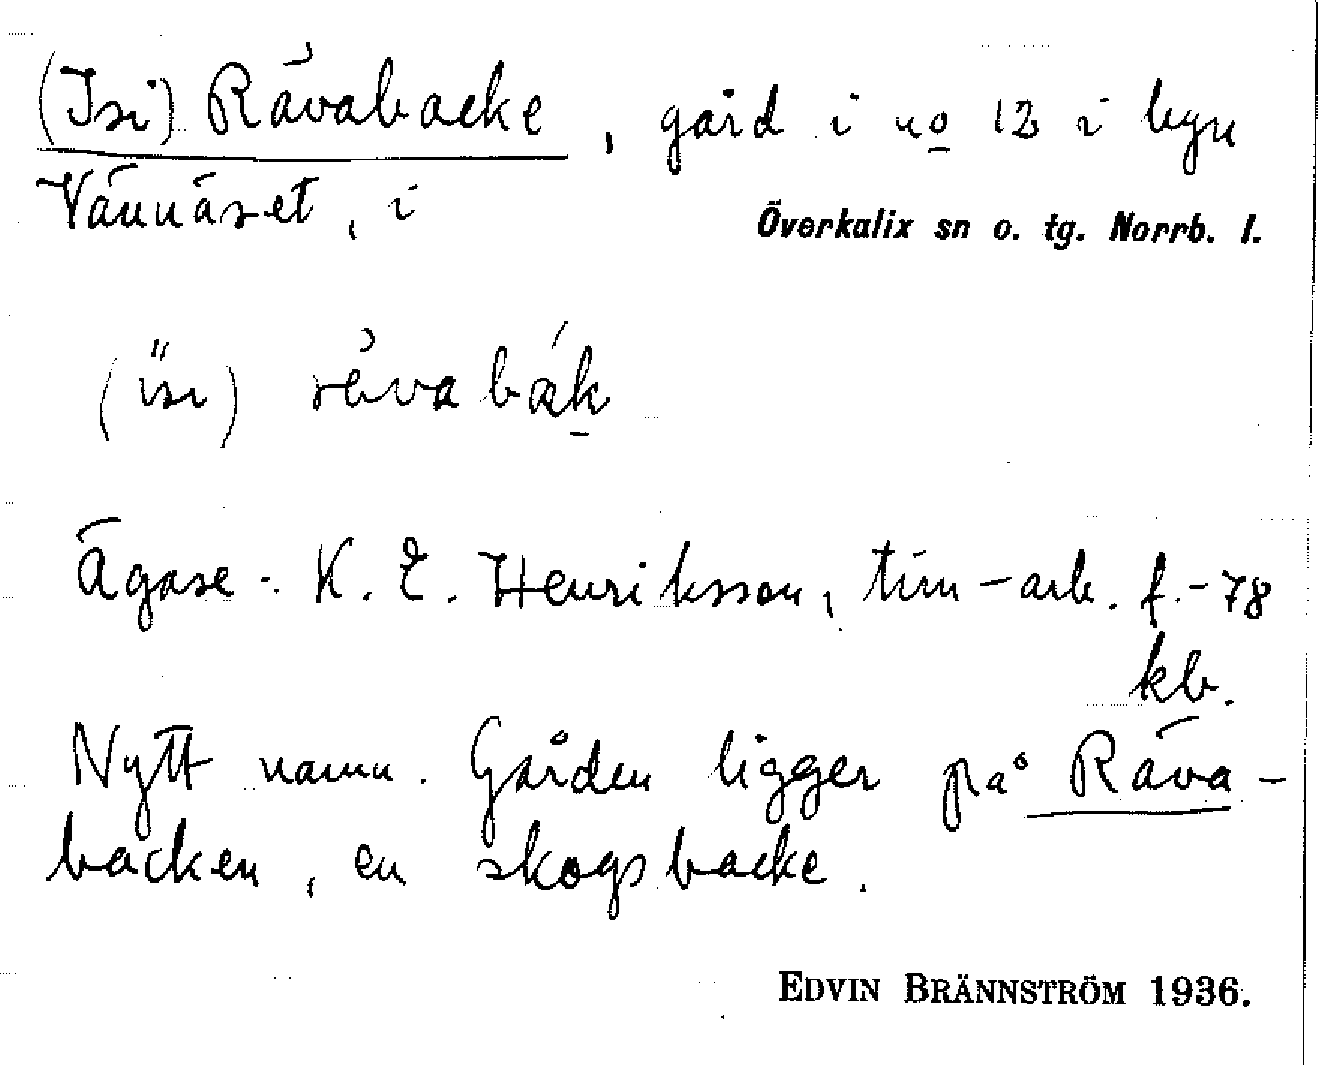 (Isi) Rävabacke, gård i no 12 i byn
Vännäset, i
Överkalix sn o. tg. Norrb. l.
Ägare: K. E. Henriksson, tim-arb. f. -78
kb.
Nytt namn. Gården ligger på Räva-
backen, en skogsbacke.
EDVIN BRÄNNSTRÖM 1936.